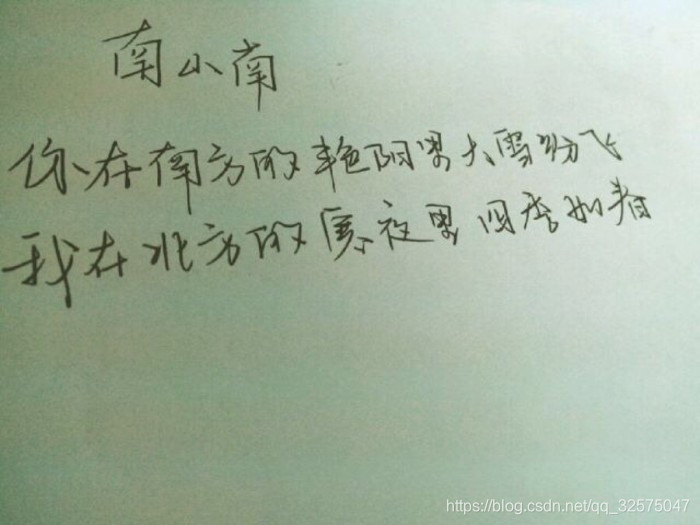 南山南
你在南方的艳阳里大雪纷飞
我在北方的寒夜里四季如春
https://blog.csdn.net/qq_32575047